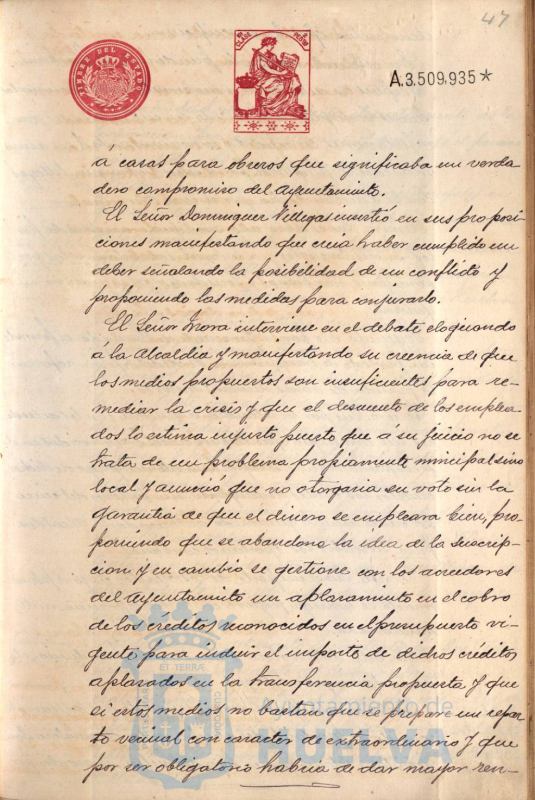 47
TIMBRE DEL ESTADO
A.3.509.935*
á casas para obreros que significaba un verda
dero compromiso del Ayuntamiento.
El Señor Dominguez Villegas insistió en sus proposi
ciones manifestando que creia haber cumplido un
deber señalando la posibilidad de un conflicto y
proponiendo las medidas para conjurarlo.
El Señor Mora interviene en el debate elogiando
á la Alcaldia y manifestando su creencia de que
los medios propuestos son insuficientes para re-
mediar la crisis y que el descuento de los emplea-
dos lo estima injusto puesto que á su juicio no se
trata de un problema propiamente municipal sino
local y anunció que no otorgaria su voto sin la
garantia de que el dinero se empleara bien, pro-
poniendo que se abandone la idea de la suscrip-
cion y en cambio se gestione con los acreedores
del Ayuntamiento un aplazamiento en el cobro
de los créditos reconocidos en el presupuesto vi-
gente para incluir el importe de dichos créditos
aplazados en la transferencia propuesta y que
si estos medios no bastan que se prepare un repar
to vecinal con caracter de extraordinario y que
por ser obligatorio habria de dar mayor ren-
Ayuntamiento de
HUELVA